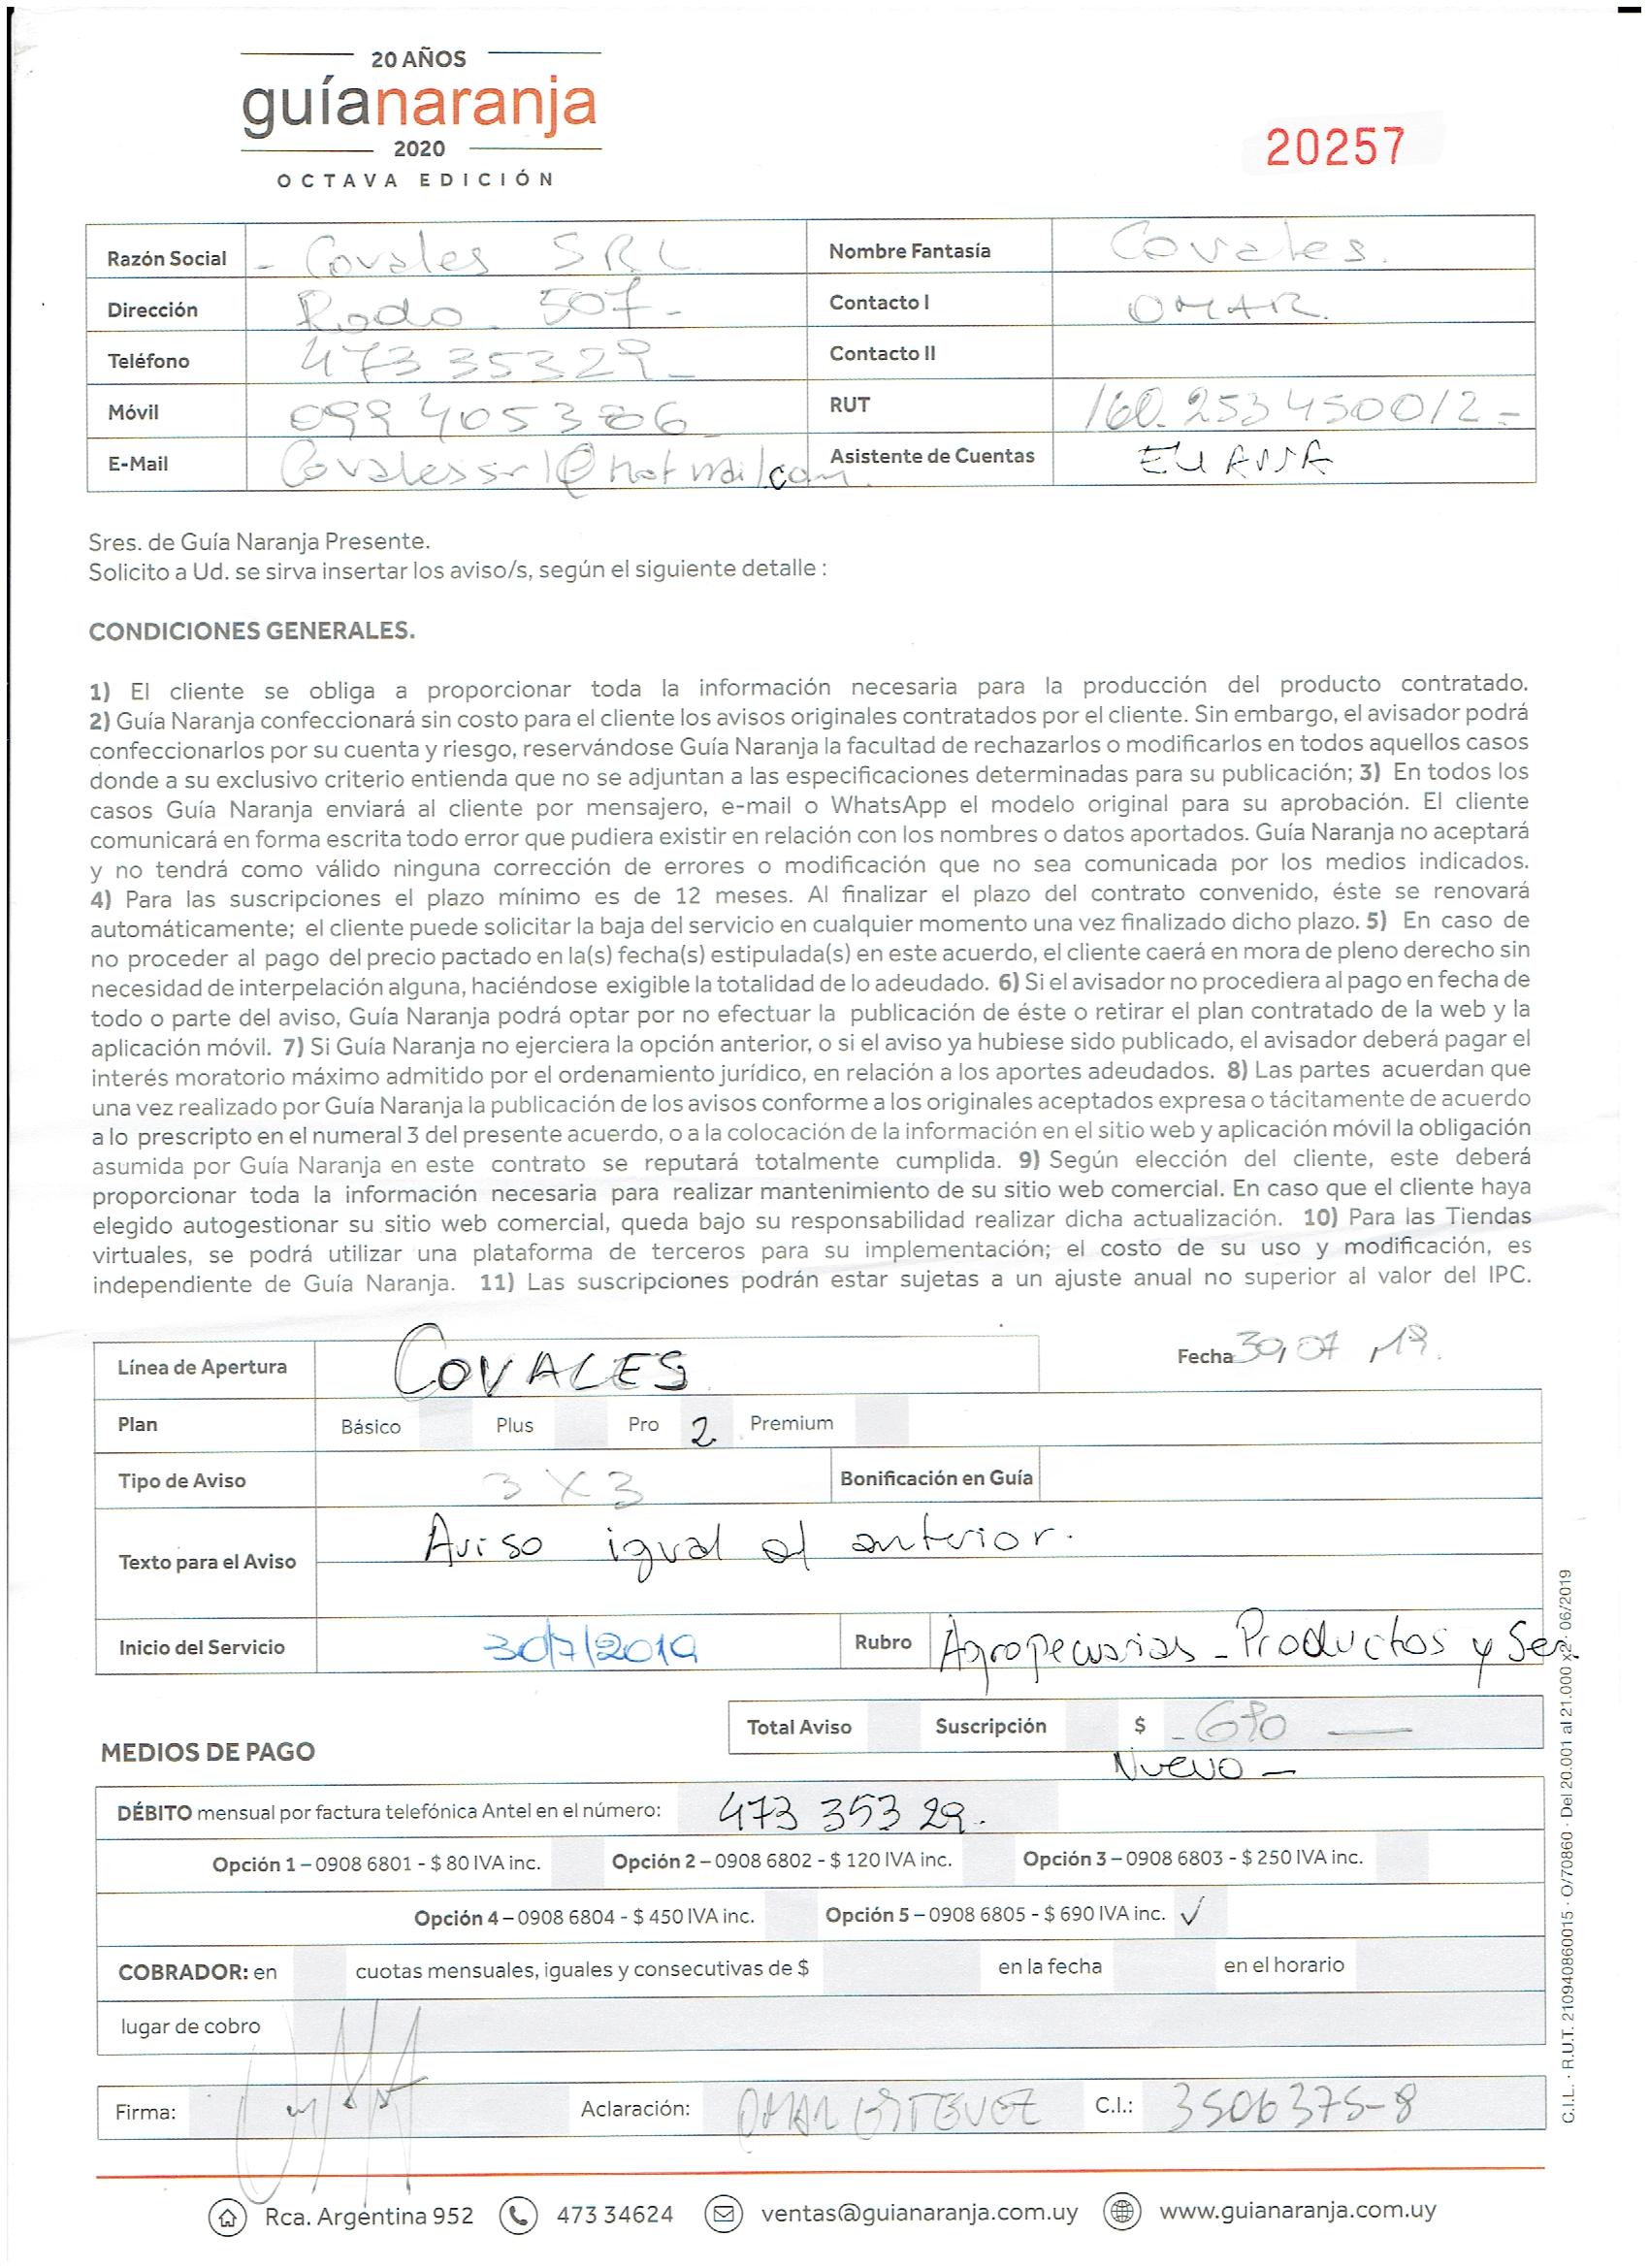 20 AÑOS
guíanaranja
2020
OCTAVA EDICIÓN
20257
Razón Social - Covales SRL Nombre Fantasía Covales.
Dirección Rodo 507- Contacto I OMAR.
Teléfono 473 35329- Contacto II
Móvil RUT 160.253450012-
E-Mail Covalessrl@hotmail.com. Asistente de Cuentas
Sres. de Guía Naranja Presente.
Solicito a Ud. se sirva insertar los aviso/s, según el siguiente detalle :
CONDICIONES GENERALES.
1) El cliente se obliga a proporcionar toda la información necesaria para la producción del producto contratado.
2) Guía Naranja confeccionará sin costo para el cliente los avisos originales contratados por el cliente. Sin embargo, el avisador podrá
confeccionarlos por su cuenta y riesgo, reservándose Guía Naranja la facultad de rechazarlos o modificarlos en todos aquellos casos
donde a su exclusivo criterio entienda que no se adjuntan a las especificaciones determinadas para su publicación; 3) En todos los
casos Guía Naranja enviará al cliente por mensajero, e-mail o WhatsApp el modelo original para su aprobación. El cliente
comunicará en forma escrita todo error que pudiera existir en relación con los nombres o datos aportados. Guía Naranja no aceptará
y no tendrá como válido ninguna corrección de errores o modificación que no sea comunicada por los medios indicados.
4) Para las suscripciones el plazo mínimo es de 12 meses. Al finalizar el plazo del contrato convenido, éste se renovará
automáticamente; el cliente puede solicitar la baja del servicio en cualquier momento una vez finalizado dicho plazo. 5) En caso de
no proceder al pago del precio pactado en la(s) fecha(s) estipulada(s) en este acuerdo, el cliente caerá en mora de pleno derecho sin
necesidad de interpelación alguna, haciéndose exigible la totalidad de lo adeudado. 6) Si el avisador no procediera al pago en fecha de
todo o parte del aviso, Guía Naranja podrá optar por no efectuar la publicación de éste o retirar el plan contratado de la web y la
aplicación móvil. 7) Si Guía Naranja no ejerciera la opción anterior, o si el aviso ya hubiese sido publicado, el avisador deberá pagar el
interés moratorio máximo admitido por el ordenamiento jurídico, en relación a los aportes adeudados. 8) Las partes acuerdan que
una vez realizado por Guía Naranja la publicación de los avisos conforme a los originales aceptados expresa o tácitamente de acuerdo
a lo prescripto en el numeral 3 del presente acuerdo, o a la colocación de la información en el sitio web y aplicación móvil la obligación
asumida por Guía Naranja en este contrato se reputará totalmente cumplida. 9) Según elección del cliente, este deberá
proporcionar toda la información necesaria para realizar mantenimiento de su sitio web comercial. En caso que el cliente haya
elegido autogestionar su sitio web comercial, queda bajo su responsabilidad realizar dicha actualización. 10) Para las Tiendas
virtuales, se podrá utilizar una plataforma de terceros para su implementación; el costo de su uso y modificación, es
independiente de Guía Naranja. 11) Las suscripciones podrán estar sujetas a un ajuste anual no superior al valor del IPC.
Línea de Apertura COVALES Fecha 30, 07, 19.
Plan Básico Plus Pro 2 Premium
Tipo de Aviso 3 X 3 Bonificación en Guía
Texto para el Aviso Aviso igual al anterior.
Inicio del Servicio 30/7/2019 Rubro Agropecuarias - Productos y Ser
Total Aviso Suscripción $ - 690 —
MEDIOS DE PAGO Nuevo —
DÉBITO mensual por factura telefónica Antel en el número: 473 353 29.
Opción 1 – 0908 6801 - $ 80 IVA inc. Opción 2 – 0908 6802 - $ 120 IVA inc. Opción 3 – 0908 6803 - $ 250 IVA inc.
Opción 4 – 0908 6804 - $ 450 IVA inc. Opción 5 – 0908 6805 - $ 690 IVA inc. ✓
COBRADOR: en cuotas mensuales, iguales y consecutivas de $ en la fecha en el horario
lugar de cobro
Firma: Aclaración: OMAR ESTEVEZ C.I.: 3506375-8
Rca. Argentina 952 473 34624 ventas@guianaranja.com.uy www.guianaranja.com.uy
C.I.L. · R.U.T. 210940860015 · O/70860 · Del 20.001 al 21.000 x2 · 06/2019